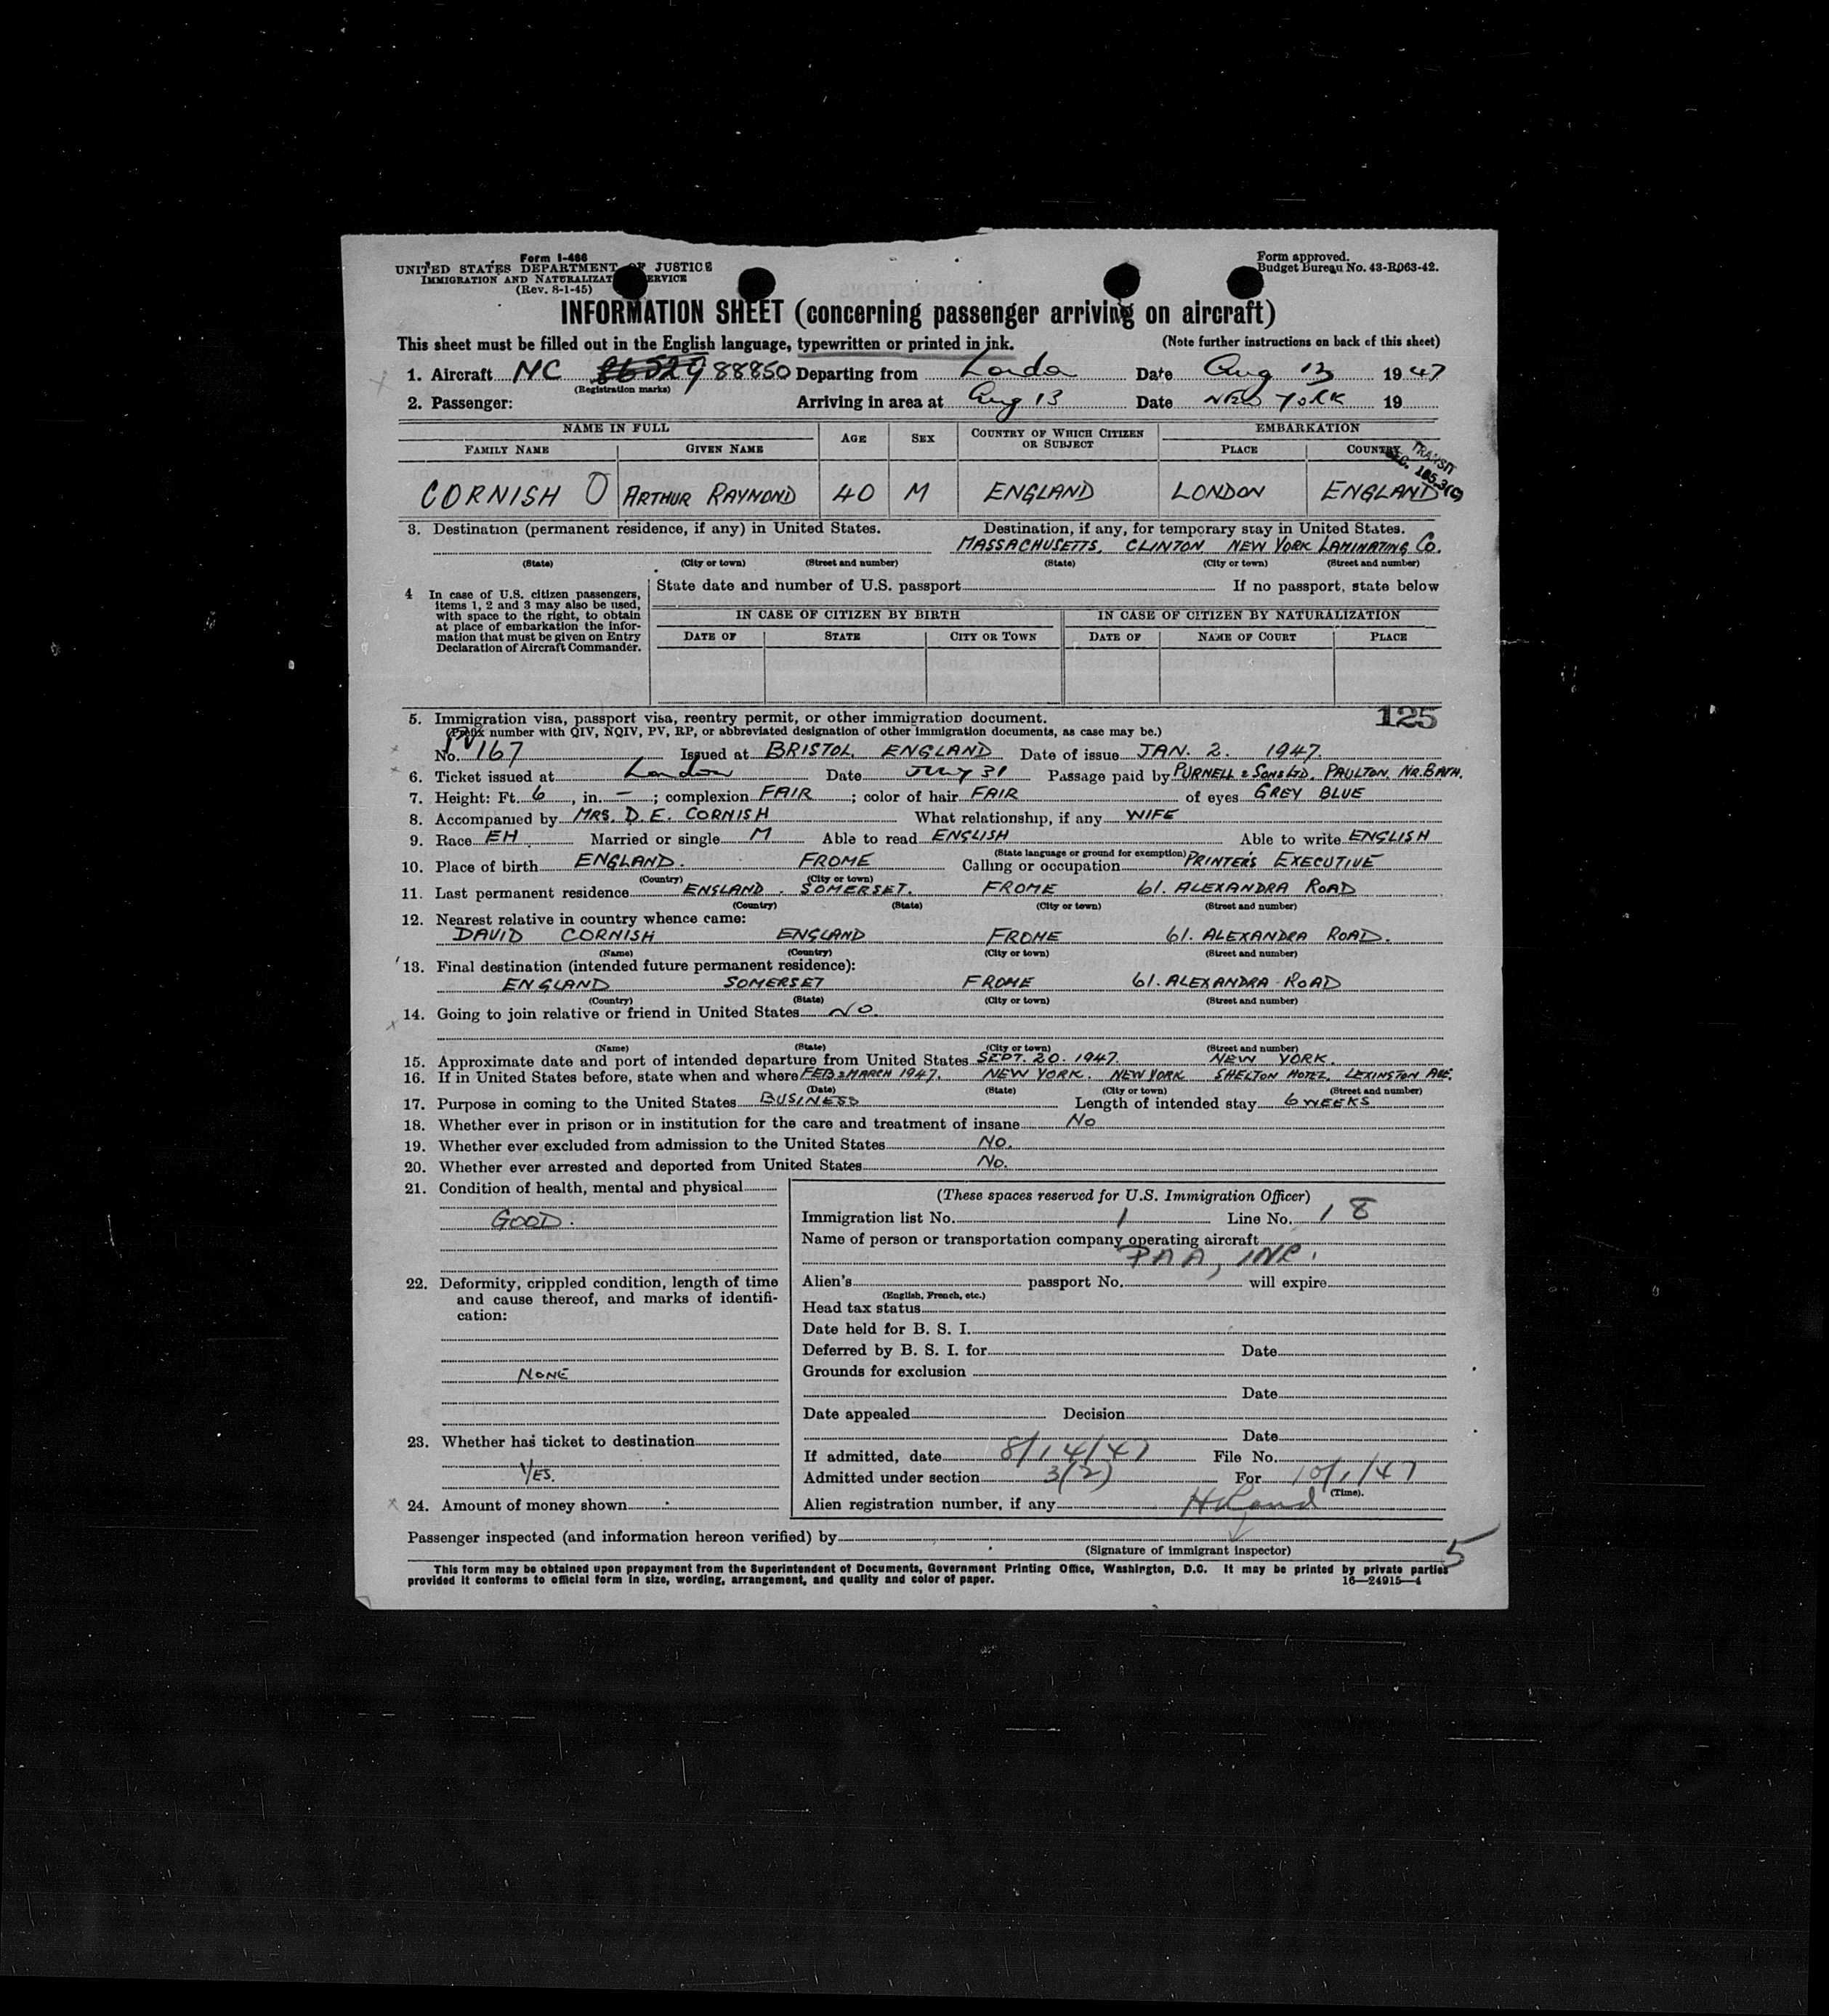 Form I-466
UNITED STATES DEPARTMENT OF JUSTICE
IMMIGRATION AND NATURALIZAT ERVICE
(Rev. 8-1-45)
Form approved.
Budget Bureau No. 43-R063-42.
INFORMATION SHEET (concerning passenger arriving on aircraft)
This sheet must be filled out in the English language, typewritten or printed in ink. (Note further instructions on back of this sheet)
1. Aircraft NC 88850 Departing from London Date Aug 13 1947
(Registration marks)
2. Passenger: Arriving in area at Aug 13 Date NEW YORK 19
NAME IN FULL AGE SEX COUNTRY OF WHICH CITIZEN OR SUBJECT EMBARKATION
FAMILY NAME GIVEN NAME PLACE COUNTRY
TRANSIT
SEC. 105.3(C)
CORNISH O ARTHUR RAYMOND 40 M ENGLAND LONDON ENGLAND
3. Destination (permanent residence, if any) in United States. Destination, if any, for temporary stay in United States.
MASSACHUSETTS, CLINTON NEW YORK LAMINATING Co.
(State) (City or town) (Street and number) (State) (City or town) (Street and number)
4 In case of U.S. citizen passengers, items 1, 2 and 3 may also be used, with space to the right, to obtain at place of embarkation the information that must be given on Entry Declaration of Aircraft Commander.
State date and number of U.S. passport If no passport, state below
IN CASE OF CITIZEN BY BIRTH IN CASE OF CITIZEN BY NATURALIZATION
DATE OF STATE CITY OR TOWN DATE OF NAME OF COURT PLACE
125
5. Immigration visa, passport visa, reentry permit, or other immigration document.
(Prefix number with QIV, NQIV, PV, RP, or abbreviated designation of other immigration documents, as case may be.)
No. PV 167 Issued at BRISTOL, ENGLAND Date of issue JAN. 2. 1947.
6. Ticket issued at London Date JULY 31 Passage paid by PURNELL & SONS LTD, PAULTON, NR. BATH.
7. Height: Ft. 6, in. –; complexion FAIR; color of hair FAIR of eyes GREY BLUE
8. Accompanied by MRS. D. E. CORNISH What relationship, if any WIFE
9. Race EH Married or single M Able to read ENGLISH Able to write ENGLISH
(State language or ground for exemption)
10. Place of birth ENGLAND. FROME Calling or occupation PRINTER'S EXECUTIVE
(Country) (City or town)
11. Last permanent residence ENGLAND. SOMERSET. FROME 61. ALEXANDRA ROAD
(Country) (State) (City or town) (Street and number)
12. Nearest relative in country whence came:
DAVID CORNISH ENGLAND FROME 61. ALEXANDRA ROAD.
(Name) (Country) (City or town) (Street and number)
13. Final destination (intended future permanent residence):
ENGLAND SOMERSET FROME 61. ALEXANDRA ROAD
(Country) (State) (City or town) (Street and number)
14. Going to join relative or friend in United States NO.
(Name) (State) (City or town) (Street and number)
15. Approximate date and port of intended departure from United States SEPT. 20. 1947. NEW YORK.
16. If in United States before, state when and where FEB & MARCH 1947. NEW YORK. NEW YORK SHELTON HOTEL, LEXINGTON AVE.
(Date) (State) (City or town) (Street and number)
17. Purpose in coming to the United States BUSINESS Length of intended stay 6 WEEKS
18. Whether ever in prison or in institution for the care and treatment of insane No
19. Whether ever excluded from admission to the United States No.
20. Whether ever arrested and deported from United States No.
21. Condition of health, mental and physical
GOOD.
22. Deformity, crippled condition, length of time and cause thereof, and marks of identification:
NONE
23. Whether has ticket to destination
YES.
24. Amount of money shown
(These spaces reserved for U.S. Immigration Officer)
Immigration list No. 1 Line No. 18
Name of person or transportation company operating aircraft
PAA, INC.
Alien's passport No. will expire
(English, French, etc.)
Head tax status
Date held for B. S. I.
Deferred by B. S. I. for Date
Grounds for exclusion
Date
Date appealed Decision
Date
If admitted, date 8/14/47 File No.
Admitted under section 3(2) For 10/1/47
(Time).
Alien registration number, if any
Passenger inspected (and information hereon verified) by
(Signature of immigrant inspector)
5
This form may be obtained upon prepayment from the Superintendent of Documents, Government Printing Office, Washington, D.C. It may be printed by private parties
provided it conforms to official form in size, wording, arrangement, and quality and color of paper. 16—24915-4